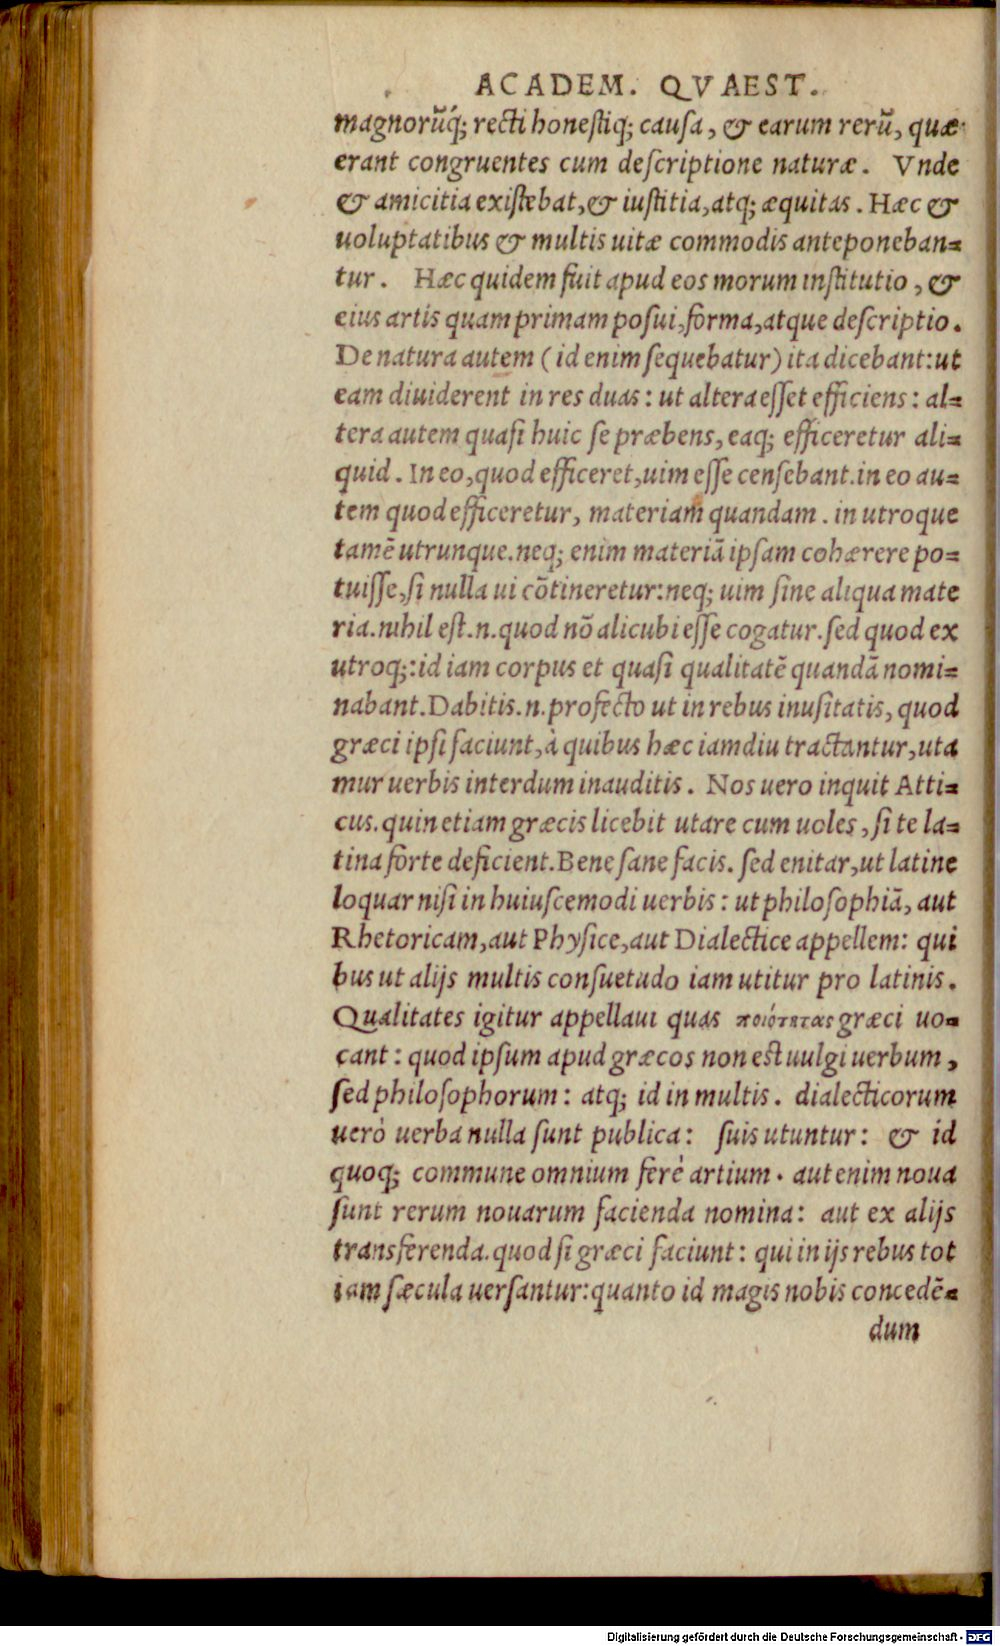 ACADEM. QVAEST.
magnorũq́; recti honeſtiq; cauſa, & earum rerũ, quæ
erant congruentes cum deſcriptione naturæ. Vnde
& amicitia exiſtebat,& iuſtitia,atq; æquitas. Hæc &
uoluptatibus & multis uitæ commodis anteponeban=
tur. Hæc quidem fuit apud eos morum inſtitutio, &
eius artis quam primam poſui,forma,atque deſcriptio.
De natura autem (id enim ſequebatur) ita dicebant:ut
eam diuiderent in res duas: ut altera eſſet efficiens: al=
tera autem quaſi huic ſe præbens, eaq; efficeretur ali=
quid. In eo,quod efficeret,uim eſſe cenſebant.in eo au=
tem quod efficeretur, materiam quandam. in utroque
tamẽ utrunque.neq; enim materiã ipſam cohærere po=
tuiſſe,ſi nulla ui cõtineretur:neq; uim ſine aliqua mate
ria.nihil eſt.n.quod nõ alicubi eſſe cogatur.ſed quod ex
utroq;:id iam corpus et quaſi qualitatẽ quandã nomi=
nabant.Dabitis.n.profecto ut in rebus inuſitatis, quod
græci ipſi faciunt,à quibus hæc iamdiu tractantur,uta
mur uerbis interdum inauditis. Nos uero inquit Atti=
cus.quin etiam græcis licebit utare cum uoles, ſi te la=
tina forte deficient.Bene ſane facis. ſed enitar,ut latine
loquar niſi in huiuſcemodi uerbis: ut philoſophiã, aut
Rhetoricam,aut Phyſice,aut Dialectice appellem: qui
bus ut alijs multis conſuetudo iam utitur pro latinis.
Qualitates igitur appellaui quas ποιότητας græci uo=
cant: quod ipſum apud græcos non eſt uulgi uerbum,
ſed philoſophorum: atq; id in multis. dialecticorum
uerò uerba nulla ſunt publica: ſuis utuntur: & id
quoq; commune omnium ferè artium. aut enim noua
ſunt rerum nouarum facienda nomina: aut ex alijs
transferenda.quod ſi græci faciunt: qui in ijs rebus tot
iam ſæcula uerſantur:quanto id magis nobis concedẽ=
dum
Digitalisierung gefördert durch die Deutsche Forschungsgemeinschaft - DFG